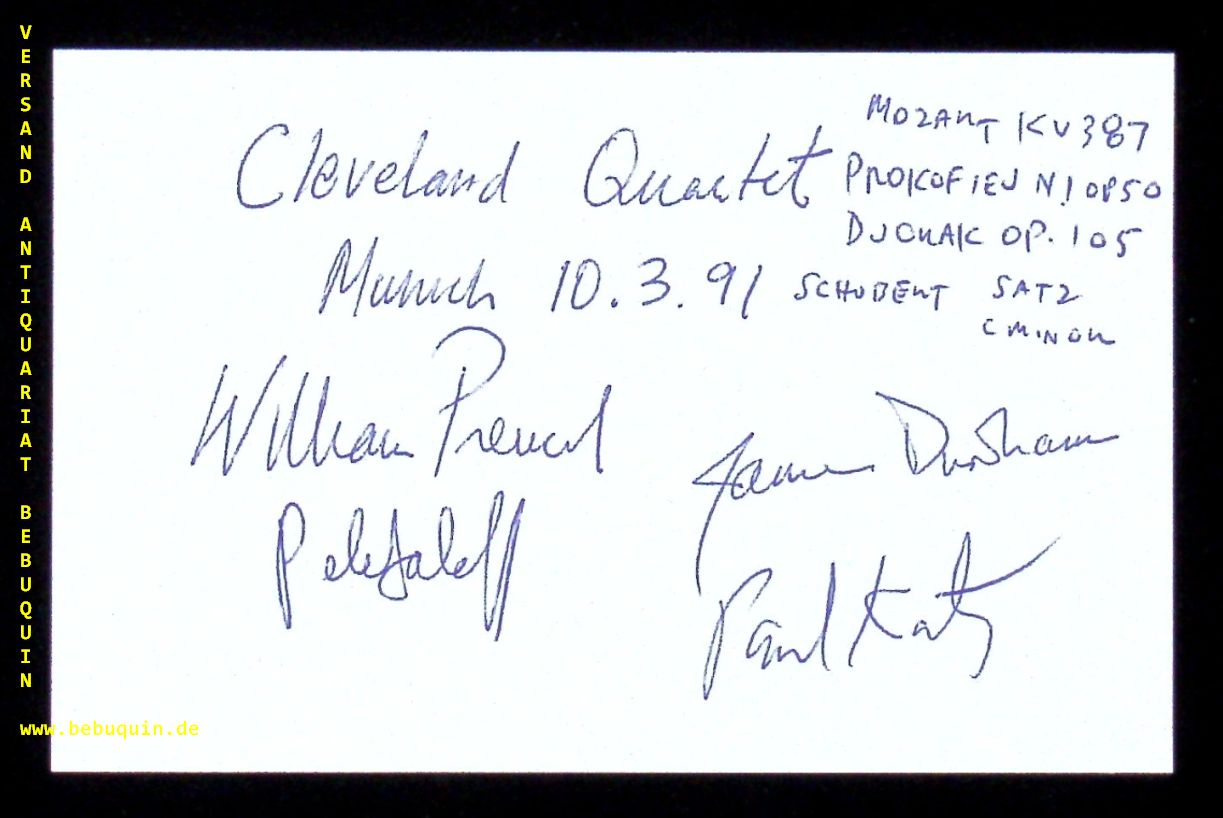 VERSAND ANTIQUARIAT BEBUQUIN
Cleveland Quartet
Munich 10.3.91
MOZART KV 387
PROKOFIEV N.1 OP 50
DVORAK OP. 105
SCHUBERT SATZ
C MINOR
William Preucil
James Dunham
Peter Salaff
Paul Katz
www.bebuquin.de